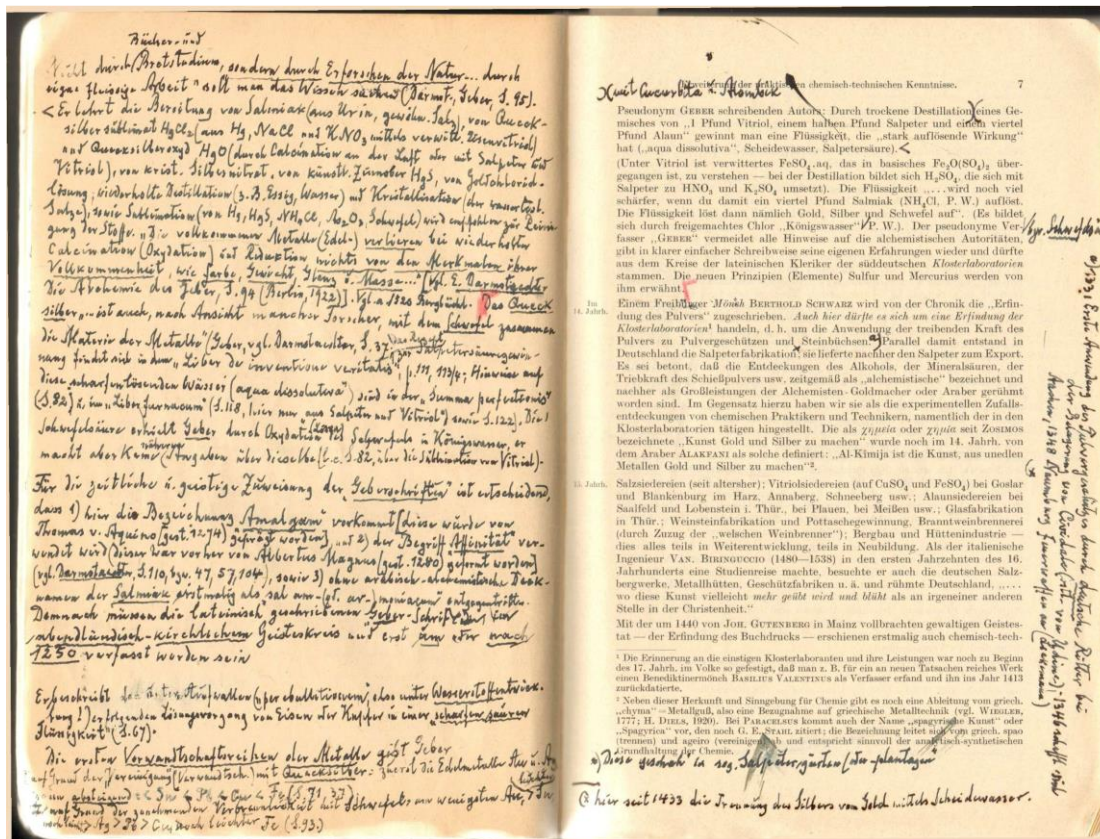 Bücher- und
Nicht durch Brotstudium, sondern durch Erforschen der Natur... durch
eigne fleissige Arbeit" soll man das Wissen suchen (Darmst., Geber, S. 95).
< Er lehrt die Bereitung von Salmiak (aus Urin, gewöhn. Salz), von Queck-
silbersublimat HgCl₂ (aus Hg, NaCl und KNO₃ mittels verwitt. Eisenvitriol)
und Quecksilberoxyd HgO (durch Calcination an der Luft oder mit Salpeter und
Vitriol), von krist. Silbernitrat, von künstl. Zinnober HgS, von Goldchlorid-
lösung; wiederholte Destillation (z. B. Essig, Wasser) und Kristallisation (der
Salze), sowie Sublimation (von Hg, HgS, NH₄Cl, As₂O₃, Schwefel) wird empfohlen zur Reini-
gung der Stoffe. "Die vollkommenen Metalle (Edel-) verlieren bei wiederholter
Calcination (Oxydation) und Reduktion nichts von den Merkmalen ihrer
Vollkommenheit, wie Farbe, Gewicht, Glanz u. Masse..." [Vgl. E. Darmstaedter
Die Alchemie des Geber, S. 94 (Berlin, 1922)]. Das Queck
silber „... ist auch, nach Ansicht mancher Forscher, mit dem Schwefel zusammen
die Materie der Metalle" (Geber, vgl. Darmstaedter, S. 37
zur Salpetersäuregewin-
nung findet sich in dem „Liber de inventione veritatis", p. 111, 113/4; Hinweise auf
diese „scharfen lösenden Wässer" (aqua dissolutiva) sind in der „Summa perfectionis"
(S. 82) u. im „Liber fornacum" (S. 118, hier nur aus Salpeter und Vitriol) sowie S. 122). Die
Schwefelsäure erhielt Geber durch Oxydation des Schwefels in Königswasser, er
macht aber keine näheren Angaben über dieselbe (l. c. S. 82, über die Sublimation von Vitriol).
Für die zeitliche u. geistige Zuweisung der „Geberschriften" ist entscheidend,
dass 1) hier die Bezeichnung Amalgam vorkommt [diese würde von
Thomas v. Aquino (gest. 1274) geprägt worden], und 2) der Begriff Affinität ver-
wendet wird (dieser war vorher von Albertus Magnus (gest. 1280) geformt worden)
[vgl. Darmstaedter, S. 110, bzw. 47, 57, 104], sowie 3) ohne arabisch-alchemistische Deck-
namen der Salmiak erstmalig als sal am- (gr. ar-) moniacum entgegentritt.
Demnach müssen die lateinisch geschriebenen Geber-Schriften im
abendländisch-kirchlichem Geisteskreis und erst um oder nach
1250 verfasst worden sein
Er beschreibt das unter Aufwallen (per ebullitionem), also unter Wasserstoffentwick-
lung!) erfolgenden Lösungsvorgang von Eisen oder Kupfer in einer „scharfen sauren
Flüssigkeit" (S. 67).
Die ersten Verwandtschaftsreihen der Metalle gibt Geber
auf Grund der Vereinigung (Verwandtsch.) mit Quecksilber: zuerst die Edelmetalle Au u. Ag
dann absteigend < Sn < Pb < Cu < Fe (S. 71, 37)
auf Grund der zunehmenden Verbrennlichkeit mit Schwefel: am wenigsten Au, > Sn,
> Ag > Pb > Cu, noch leichter Fe (S. 93.)
X mit Cucurbita u. Alembik
Erweiterung der praktischen chemisch-technischen Kenntnisse. 7
Pseudonym GEBER schreibenden Autor: Durch trockene Destillation eines Ge-
misches von „1 Pfund Vitriol, einem halben Pfund Salpeter und einem viertel
Pfund Alaun" gewinnt man eine Flüssigkeit, die „stark auflösende Wirkung"
hat („aqua dissolutiva", Scheidewasser, Salpetersäure). <
(Unter Vitriol ist verwittertes FeSO₄.aq, das in basisches Fe₂O(SO₄)₂ über-
gegangen ist, zu verstehen — bei der Destillation bildet sich H₂SO₄, die sich mit
Salpeter zu HNO₃ und K₂SO₄ umsetzt). Die Flüssigkeit „... wird noch viel
schärfer, wenn du damit ein viertel Pfund Salmiak (NH₄Cl, P. W.) auflöst.
Die Flüssigkeit löst dann nämlich Gold, Silber und Schwefel auf". (Es bildet
sich durch freigemachtes Chlor „Königswasser" P. W.). Der pseudonyme Ver-
fasser „GEBER" vermeidet alle Hinweise auf die alchemistischen Autoritäten,
gibt in klarer einfacher Schreibweise seine eigenen Erfahrungen wieder und dürfte
aus dem Kreise der lateinischen Kleriker der süddeutschen Klosterlaboratorien
stammen. Die neuen Prinzipien (Elemente) Sulfur und Mercurius werden von
ihm erwähnt.
Im
14. Jahrh.
Einem Freiburger Mönch BERTHOLD SCHWARZ wird von der Chronik die „Erfin-
dung des Pulvers" zugeschrieben. Auch hier dürfte es sich um eine Erfindung der
Klosterlaboratorien¹ handeln, d. h. um die Anwendung der treibenden Kraft des
Pulvers zu Pulvergeschützen und Steinbüchsen. Parallel damit entstand in
Deutschland die Salpeterfabrikation; sie lieferte nachher den Salpeter zum Export.
Es sei betont, daß die Entdeckungen des Alkohols, der Mineralsäuren, der
Triebkraft des Schießpulvers usw. zeitgemäß als „alchemistische" bezeichnet und
nachher als Großleistungen der Alchemisten-Goldmacher oder Araber gerühmt
worden sind. Im Gegensatz hierzu haben wir sie als die experimentellen Zufalls-
entdeckungen von chemischen Praktikern und Technikern, namentlich der in den
Klosterlaboratorien tätigen hingestellt. Die als χημεία oder χημία seit ZOSIMOS
bezeichnete „Kunst Gold und Silber zu machen" wurde noch im 14. Jahrh. von
dem Araber ALAKFANI als solche definiert: „Al-Kimija ist die Kunst, aus unedlen
Metallen Gold und Silber zu machen"².
15. Jahrh.
Salzsiedereien (seit altersher); Vitriolsiedereien (auf CuSO₄ und FeSO₄) bei Goslar
und Blankenburg im Harz, Annaberg, Schneeberg usw.; Alaunsiedereien bei
Saalfeld und Lobenstein i. Thür., bei Plauen, bei Meißen usw.; Glasfabrikation
in Thür.; Weinsteinfabrikation und Pottaschegewinnung, Branntweinbrennerei
(durch Zuzug der „welschen Weinbrenner"); Bergbau und Hüttenindustrie —
dies alles teils in Weiterentwicklung, teils in Neubildung. Als der italienische
Ingenieur VAN. BIRINGUCCIO (1480—1538) in den ersten Jahrzehnten des 16.
Jahrhunderts eine Studienreise machte, besuchte er auch die deutschen Salz-
bergwerke, Metallhütten, Geschützfabriken u. ä. und rühmte Deutschland, „....
wo diese Kunst vielleicht mehr geübt wird und blüht als an irgeneiner anderen
Stelle in der Christenheit."
Mit der um 1440 von JOH. GUTENBERG in Mainz vollbrachten gewaltigen Geistes-
tat — der Erfindung des Buchdrucks — erschienen erstmalig auch chemisch-tech-
¹ Die Erinnerung an die einstigen Klosterlaboranten und ihre Leistungen war noch zu Beginn
des 17. Jahrh. im Volke so gefestigt, daß man z. B. für ein an neuen Tatsachen reiches Werk
einen Benediktinermönch BASILIUS VALENTINUS als Verfasser erfand und ihn ins Jahr 1413
zurückdatierte.
² Neben dieser Herkunft und Sinngebung für Chemie gibt es noch eine Ableitung vom griech.
„chyma" — Metallguß, also eine Bezugnahme auf griechische Metalltechnik (vgl. WIEGLER,
1777; H. DIELS, 1920). Bei PARACELSUS kommt auch der Name „spagyrische Kunst" oder
„Spagyrica" vor, den noch G. E. STAHL zitiert; die Bezeichnung leitet sich vom griech. spao
(trennen) und ageiro (vereinigen) und entspricht sinnvoll der analytisch-synthetischen
Grundhaltung der Chemie.
x) Diese geschah in sog. Salpetergärten (oder -plantagen
hier seit 1433 die Trennung des Silbers von Gold mittels Scheidewasser.
1331 Erste Anwendung des Pulvergeschützes durch deutsche Ritter bei
der Belagerung von Cividale (östl. von Udine); 1346
Aachen, 1348 Naumburg Feuerwaffen an